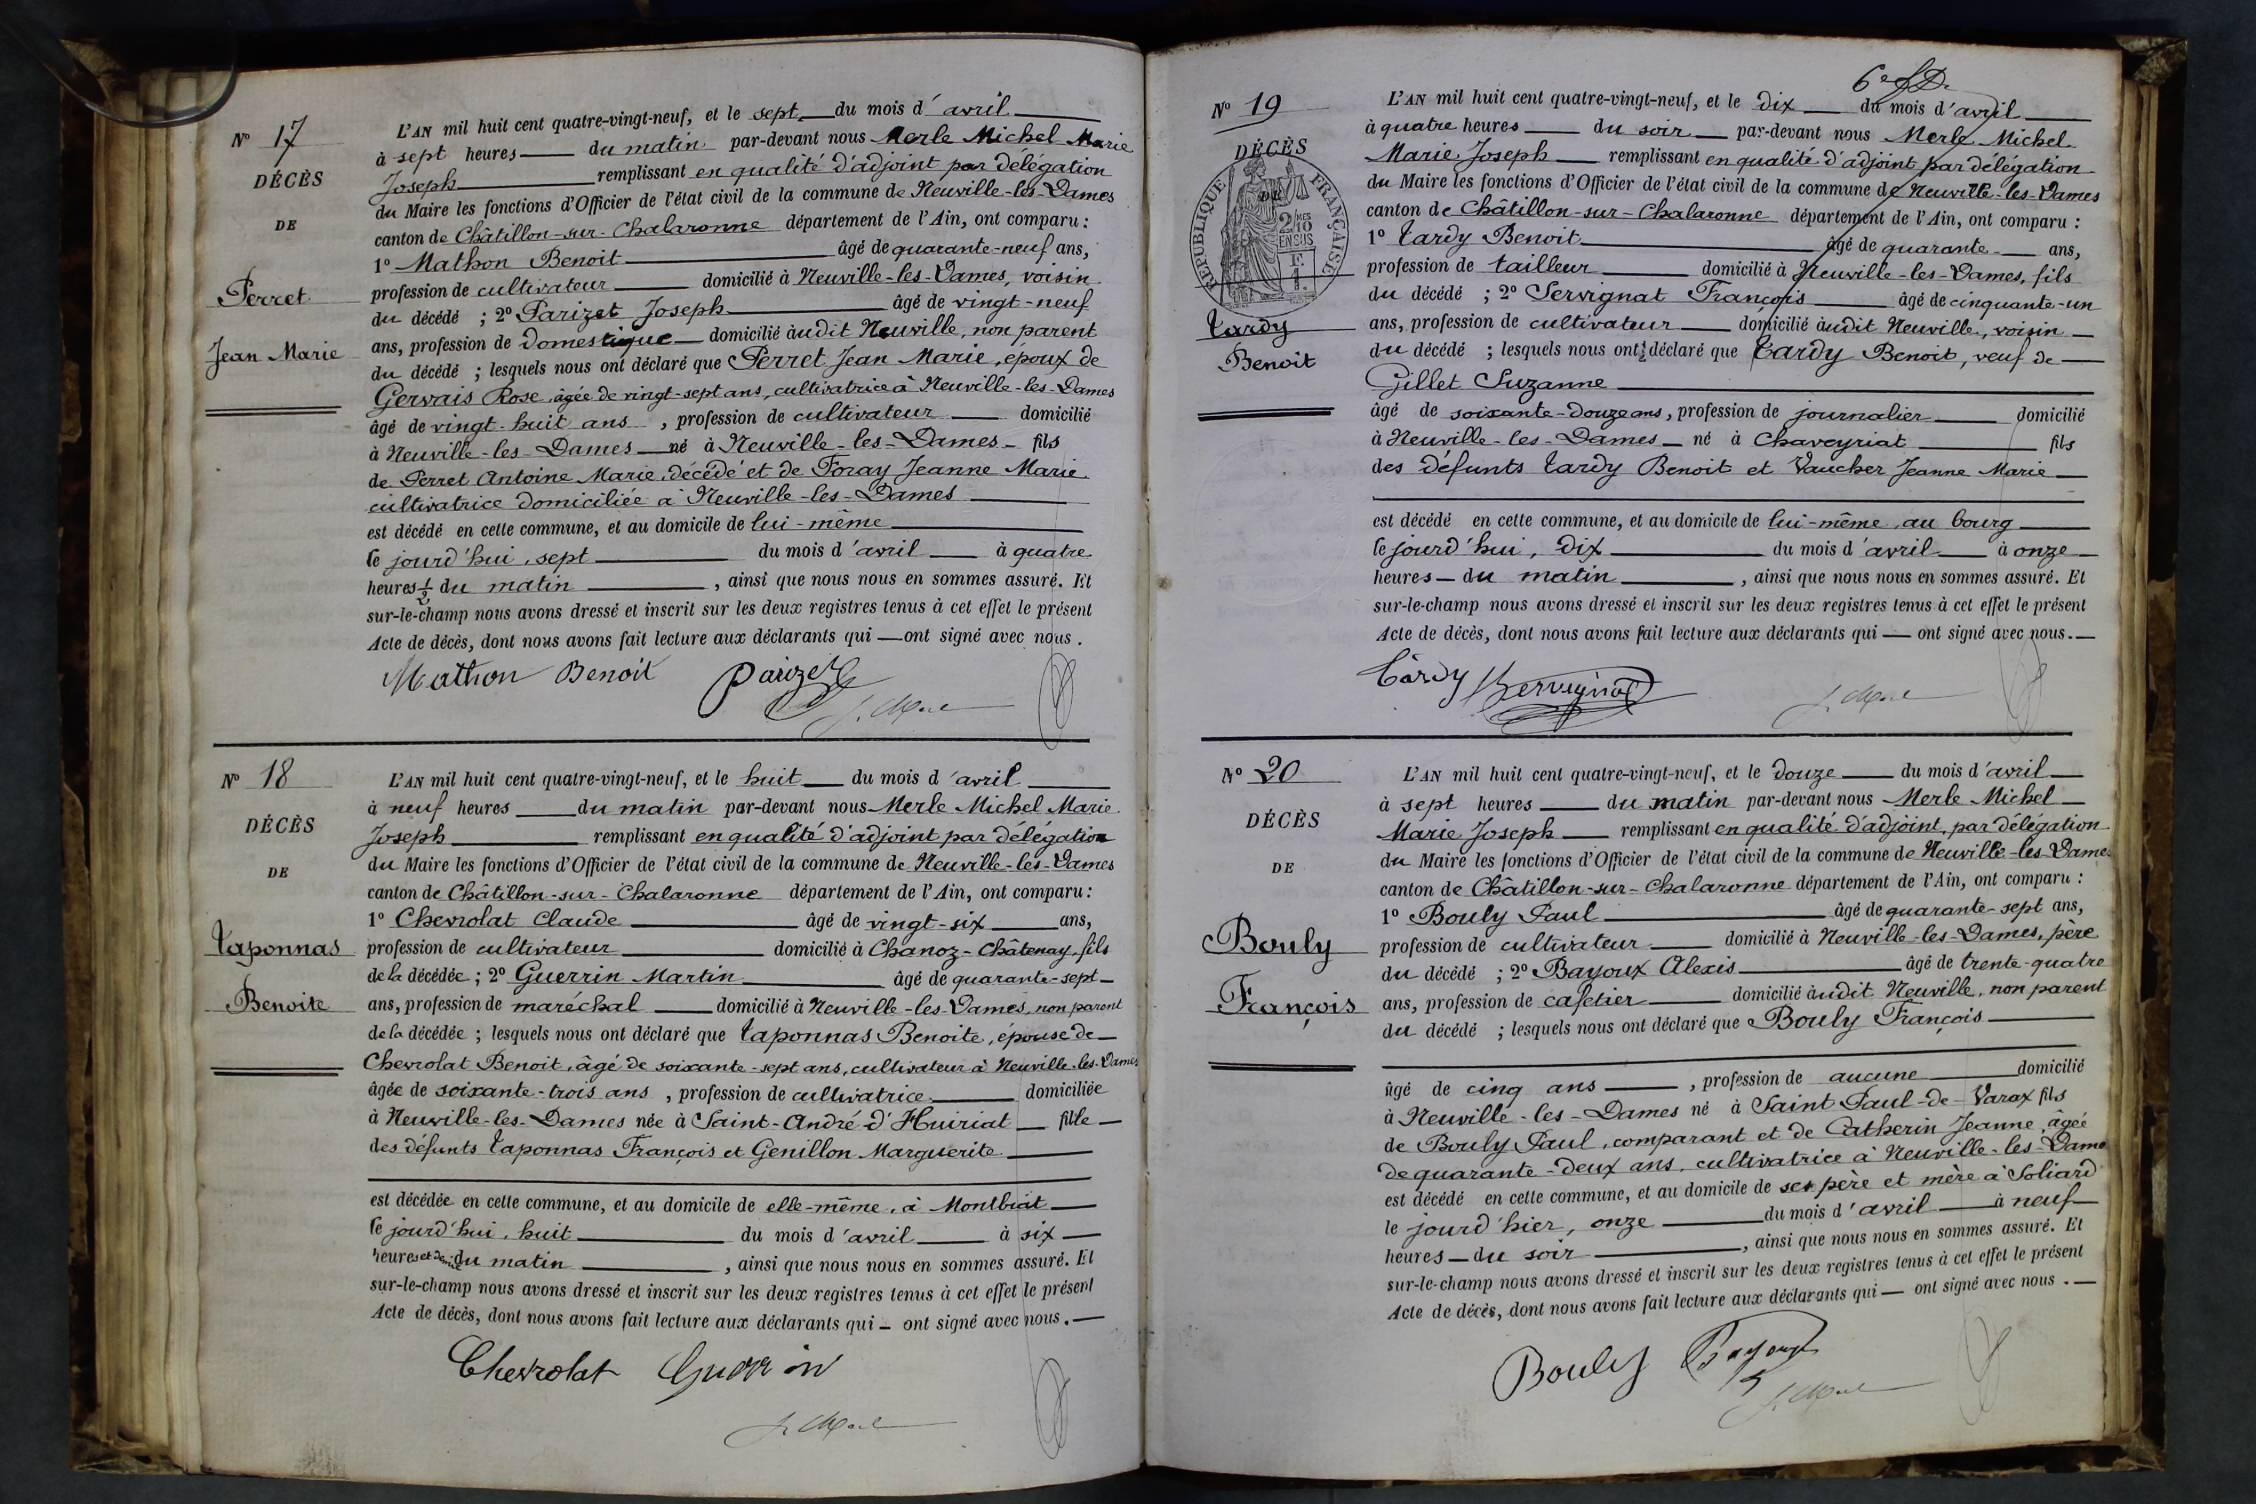 N° 17
DÉCÈS
DE
Perret
Jean Marie
L'AN mil huit cent quatre-vingt-neuf, et le sept du mois d'avril
à sept heures du matin par-devant nous Merle Michel Marie
Joseph remplissant en qualité d'adjoint par délégation
du Maire les fonctions d'Officier de l'état civil de la commune de Neuville-les-Dames
canton de Châtillon-sur-Chalaronne département de l'Ain, ont comparu :
1° Mathon Benoit âgé de quarante-neuf ans,
profession de cultivateur domicilié à Neuville-les-Dames, voisin
du décédé ; 2° Parizet Joseph âgé de vingt-neuf
ans, profession de domestique domicilié àudit Neuville, non parent
du décédé ; lesquels nous ont déclaré que Perret Jean Marie, époux de
Gervais Rose, âgée de vingt-sept ans, cultivatrice à Neuville-les-Dames
âgé de vingt-huit ans, profession de cultivateur domicilié
à Neuville-les-Dames né à Neuville-les-Dames fils
de Perret Antoine Marie, décédé et de Foray Jeanne Marie
cultivatrice domiciliée à Neuville-les-Dames
est décédé en cette commune, et au domicile de lui-même
le jourd'hui, sept du mois d'avril à quatre
heures ½ du matin, ainsi que nous nous en sommes assuré. Et
sur-le-champ nous avons dressé et inscrit sur les deux registres tenus à cet effet le présent
Acte de décès, dont nous avons fait lecture aux déclarants qui — ont signé avec nous.
Mathon Benoit Parizet
J. Merle
N° 18
DÉCÈS
DE
Taponnas
Benoite
L'AN mil huit cent quatre-vingt-neuf, et le huit du mois d'avril
à neuf heures du matin par-devant nous Merle Michel Marie
Joseph remplissant en qualité d'adjoint par délégation
du Maire les fonctions d'Officier de l'état civil de la commune de Neuville-les-Dames
canton de Châtillon-sur-Chalaronne département de l'Ain, ont comparu :
1° Chevrolat Claude âgé de vingt-six ans,
profession de cultivateur domicilié à Chanoz-Châtenay, fils
de la décédée ; 2° Guerrin Martin âgé de quarante-sept
ans, profession de maréchal domicilié à Neuville-les-Dames, non parent
de la décédée ; lesquels nous ont déclaré que Taponnas Benoite, épouse de
Chevrolat Benoit, âgé de soixante-sept ans, cultivateur à Neuville-les-Dames
âgée de soixante-trois ans, profession de cultivatrice domiciliée
à Neuville-les-Dames née à Saint-André-d'Huiriat fille
des défunts Taponnas François et Genillon Marguerite
est décédée en cette commune, et au domicile de elle-même, à Montbiat
le jourd'hui, huit du mois d'avril à six
heures et demie du matin, ainsi que nous nous en sommes assuré. Et
sur-le-champ nous avons dressé et inscrit sur les deux registres tenus à cet effet le présent
Acte de décès, dont nous avons fait lecture aux déclarants qui — ont signé avec nous.
Chevrolat Guerrin
J. Merle
6e
N° 19
DÉCÈS
DE
RÉPUBLIQUE FRANÇAISE
2/10 EN SUS
Tardy
Benoit
L'AN mil huit cent quatre-vingt-neuf, et le dix du mois d'avril
à quatre heures du soir par-devant nous Merle Michel
Marie Joseph remplissant en qualité d'adjoint par délégation
du Maire les fonctions d'Officier de l'état civil de la commune de Neuville-les-Dames
canton de Châtillon-sur-Chalaronne département de l'Ain, ont comparu :
1° Tardy Benoit âgé de quarante ans,
profession de tailleur domicilié à Neuville-les-Dames, fils
du décédé ; 2° Servignat François âgé de cinquante-un
ans, profession de cultivateur domicilié àudit Neuville, voisin
du décédé ; lesquels nous ont déclaré que Tardy Benoit, veuf de
Gillet Suzanne
âgé de soixante-douze ans, profession de journalier domicilié
à Neuville-les-Dames né à Chaveyriat fils
des défunts Tardy Benoit et Vaucher Jeanne Marie
est décédé en cette commune, et au domicile de lui-même, au bourg
le jourd'hui, dix du mois d'avril à onze
heures — du matin, ainsi que nous nous en sommes assuré. Et
sur-le-champ nous avons dressé et inscrit sur les deux registres tenus à cet effet le présent
Acte de décès, dont nous avons fait lecture aux déclarants qui — ont signé avec nous.
Tardy Servignat
J. Merle
N° 20
DÉCÈS
DE
Bouly
François
L'AN mil huit cent quatre-vingt-neuf, et le douze du mois d'avril
à sept heures du matin par-devant nous Merle Michel
Marie Joseph remplissant en qualité d'adjoint, par délégation
du Maire les fonctions d'Officier de l'état civil de la commune de Neuville-les-Dames
canton de Châtillon-sur-Chalaronne département de l'Ain, ont comparu :
1° Bouly Paul âgé de quarante-sept ans,
profession de cultivateur domicilié à Neuville-les-Dames, père
du décédé ; 2° Bayoux Alexis âgé de trente-quatre
ans, profession de cafetier domicilié àudit Neuville, non parent
du décédé ; lesquels nous ont déclaré que Bouly François
âgé de cinq ans, profession de aucune domicilié
à Neuville-les-Dames né à Saint Paul-de-Varax fils
de Bouly Paul, comparant et de Catherin Jeanne, âgée
de quarante-deux ans, cultivatrice à Neuville-les-Dames
est décédé en cette commune, et au domicile de ses père et mère à Soliard
le jourd'hier, onze du mois d'avril à neuf
heures — du soir, ainsi que nous nous en sommes assuré. Et
sur-le-champ nous avons dressé et inscrit sur les deux registres tenus à cet effet le présent
Acte de décès, dont nous avons fait lecture aux déclarants qui — ont signé avec nous.
Bouly Bayoux
J. Merle